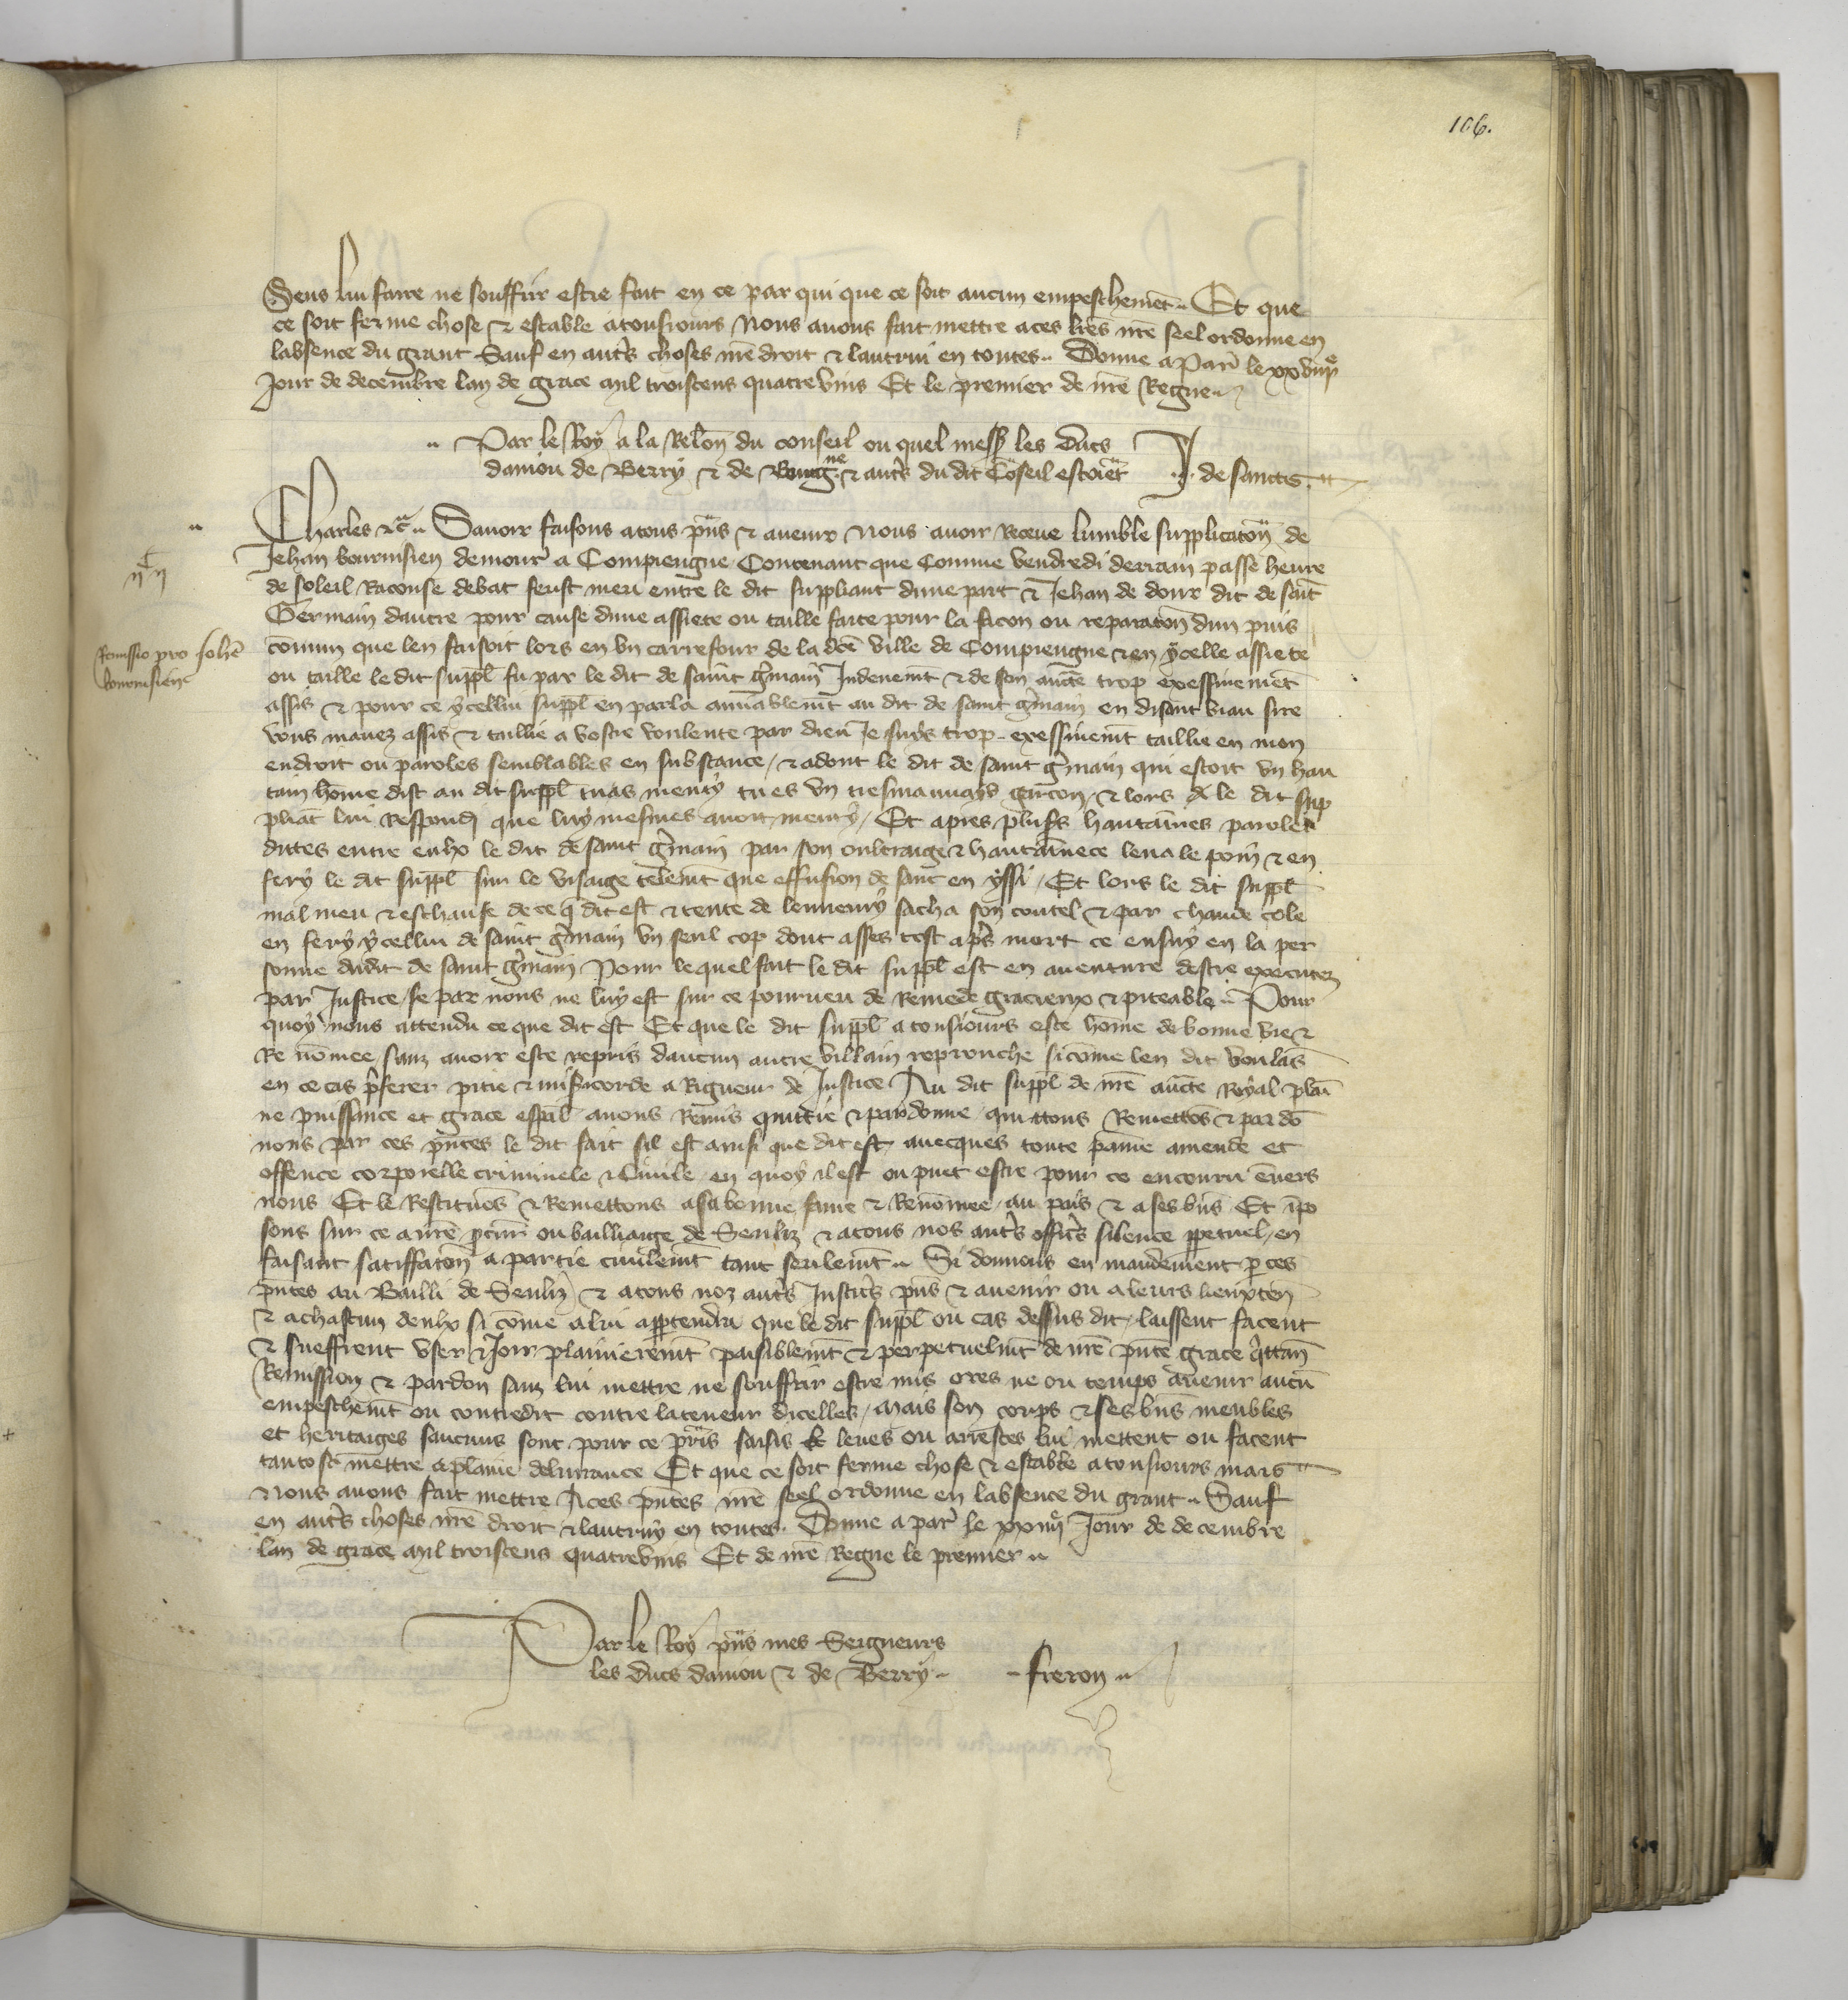 106.
Sens lui faire ne souffrir estre fait en ce par qui que ce soit aucun empeschemẽt Et que
ce soit ferme chose & estable atousiours Nous auons fait mettre aces lrẽs nrẽ seel ordonne en
labsence du grant Sauf en autrs choses nrẽ droit & lautrui en toutes Donne a Paris le
Jour de decembre lan de grace mil troiscens quatrevins Et le premier de nrẽ Regne
Par le Roy a la Relon du conseil ou quel mess les ducs
daniou de Berry & de Bourgne & autrs du dit Cõseil estoiẽt J. de sanctis
Charles &c Sauoir faisons atous pñs & auenir Nous auoir Receue lumble supplicatoñ de
Jehan bournisien demour a Compiengne Contenant que Comme vendredi derrain passe heure
de soleil Raconse debat feust meu entre le dit suppliant dune part & Jehan de dour dit de sait
Germain dautre pour cause dune assiete ou taille faite pour la facon ou reparatoñ dun puis
cõmun que len faisoit lors en vn carrefour de la dcẽ ville de Compiengne & en ycelle assiete
Remissio pro Johẽ
bournisien
ou taille le dit suppl fu par le dit de saint gmain Indeuemt & de son aucte trop exessiuemẽt
assis & pour ce ycellui suppl en parla amiablemt au dit de saint gmain en disant biau sire
vous mauez assis & taillie a vostre voulente par dieu Je suys trop exessiuemt taillie en mon
endroit ou paroles semblables en substance / & adont le dit de saint gmain qui estoit vn hau
tain hõme dist au dit suppl tu as menty tu es vn tresmauuais garcon / & lors le dit sup
pliãt lui Respondi que luy mesmes auoit menty / Et apres plusrs hautaines paroles
dittes entre eulx le dit de saint gmain par son oultraige & hautainece leua le poin & en
fery le dit suppl sur le visaige telemt que effusion de sanc en yssi / Et lors le dit suppl
mal meu & eschaufe de ce q dit est & tente de lennemy sacha son coutel & par chaude cole
en fery ycellui de saint gmain vn seul cop dont asses tost aprs mort ce ensuy en la per
sonne dudit de saint gmain Pour lequel fait le dit suppl est en auenture destre executez
par Justice se par nous ne luy est sur ce pourueu de Remede gracieux & piteable Pour
quoy nous attendu ce que dit est Et que le dit suppl a tousiours este hõme de bonne vie &
Renõmee sanz auoir este repris daucun autre villain reprouche si cõme len dit voulãs
en ce cas pferer pitie & misicorde a Rigueur de Justice Au dit suppl de nrẽ aucte Royal plai
ne puissance et grace espal auons Remis quittie & pardonne quittons Remettõs & pardõ
nons par ces pñtes le dit fait sil est ainsi que dit est auecques toute paine amende et
offence corporelle criminele & Ciuile en quoy il est ou puet estre pour ce encouru ẽuers
nous Et le Restituõs & Remettons a sa bonne fame & Renõmee au pais & a ses bñs Et ĩpo
sons sur ce a nrẽ pcur ou bailliaige de Senliz & atous nos autrs offic̃rs silence ppetuel en
faisant satiffatoñ a partie ciuilemt tant seulemt Si donnons en mandement p ces
pñtes au Bailli de Senliz & atous noz autrs Justic̃rs pñs & auenir ou a leurs lieuxteñ
& achascun deulx si cõme a lui appartendra que le dit suppl ou cas dessus dit laissent facent
& sueffrent vser & Joir plainieremt paisiblemt & perpetuelmt de nrẽ pñte grace qittan
Remission & pardon sanz lui mettre ne souffrir estre mis ores ne ou temps auenir aucũ
empeschemt ou contredit contre la teneur dicelles / mais son corps & ses bñs meubles
et heritaiges saucuns sont pour ce prris saisis leues ou arrestes lui mettent ou facent
tantost mettre a plaine deliurance Et que ce soit ferme chose & estable a tousiours mais
Nous auons fait mettre Aces pñtes nrẽ seel ordonne en labsence du grant Sauf
en autrs choses nrẽ droit & lautruy en toutes Donne a paris le xxiiije Jour de decembre
lan de grace mil troiscens quatrevins Et de nrẽ Regne le premier
Par le Roy pñs mes Seigneurs
les ducs daniou & de Berry freron